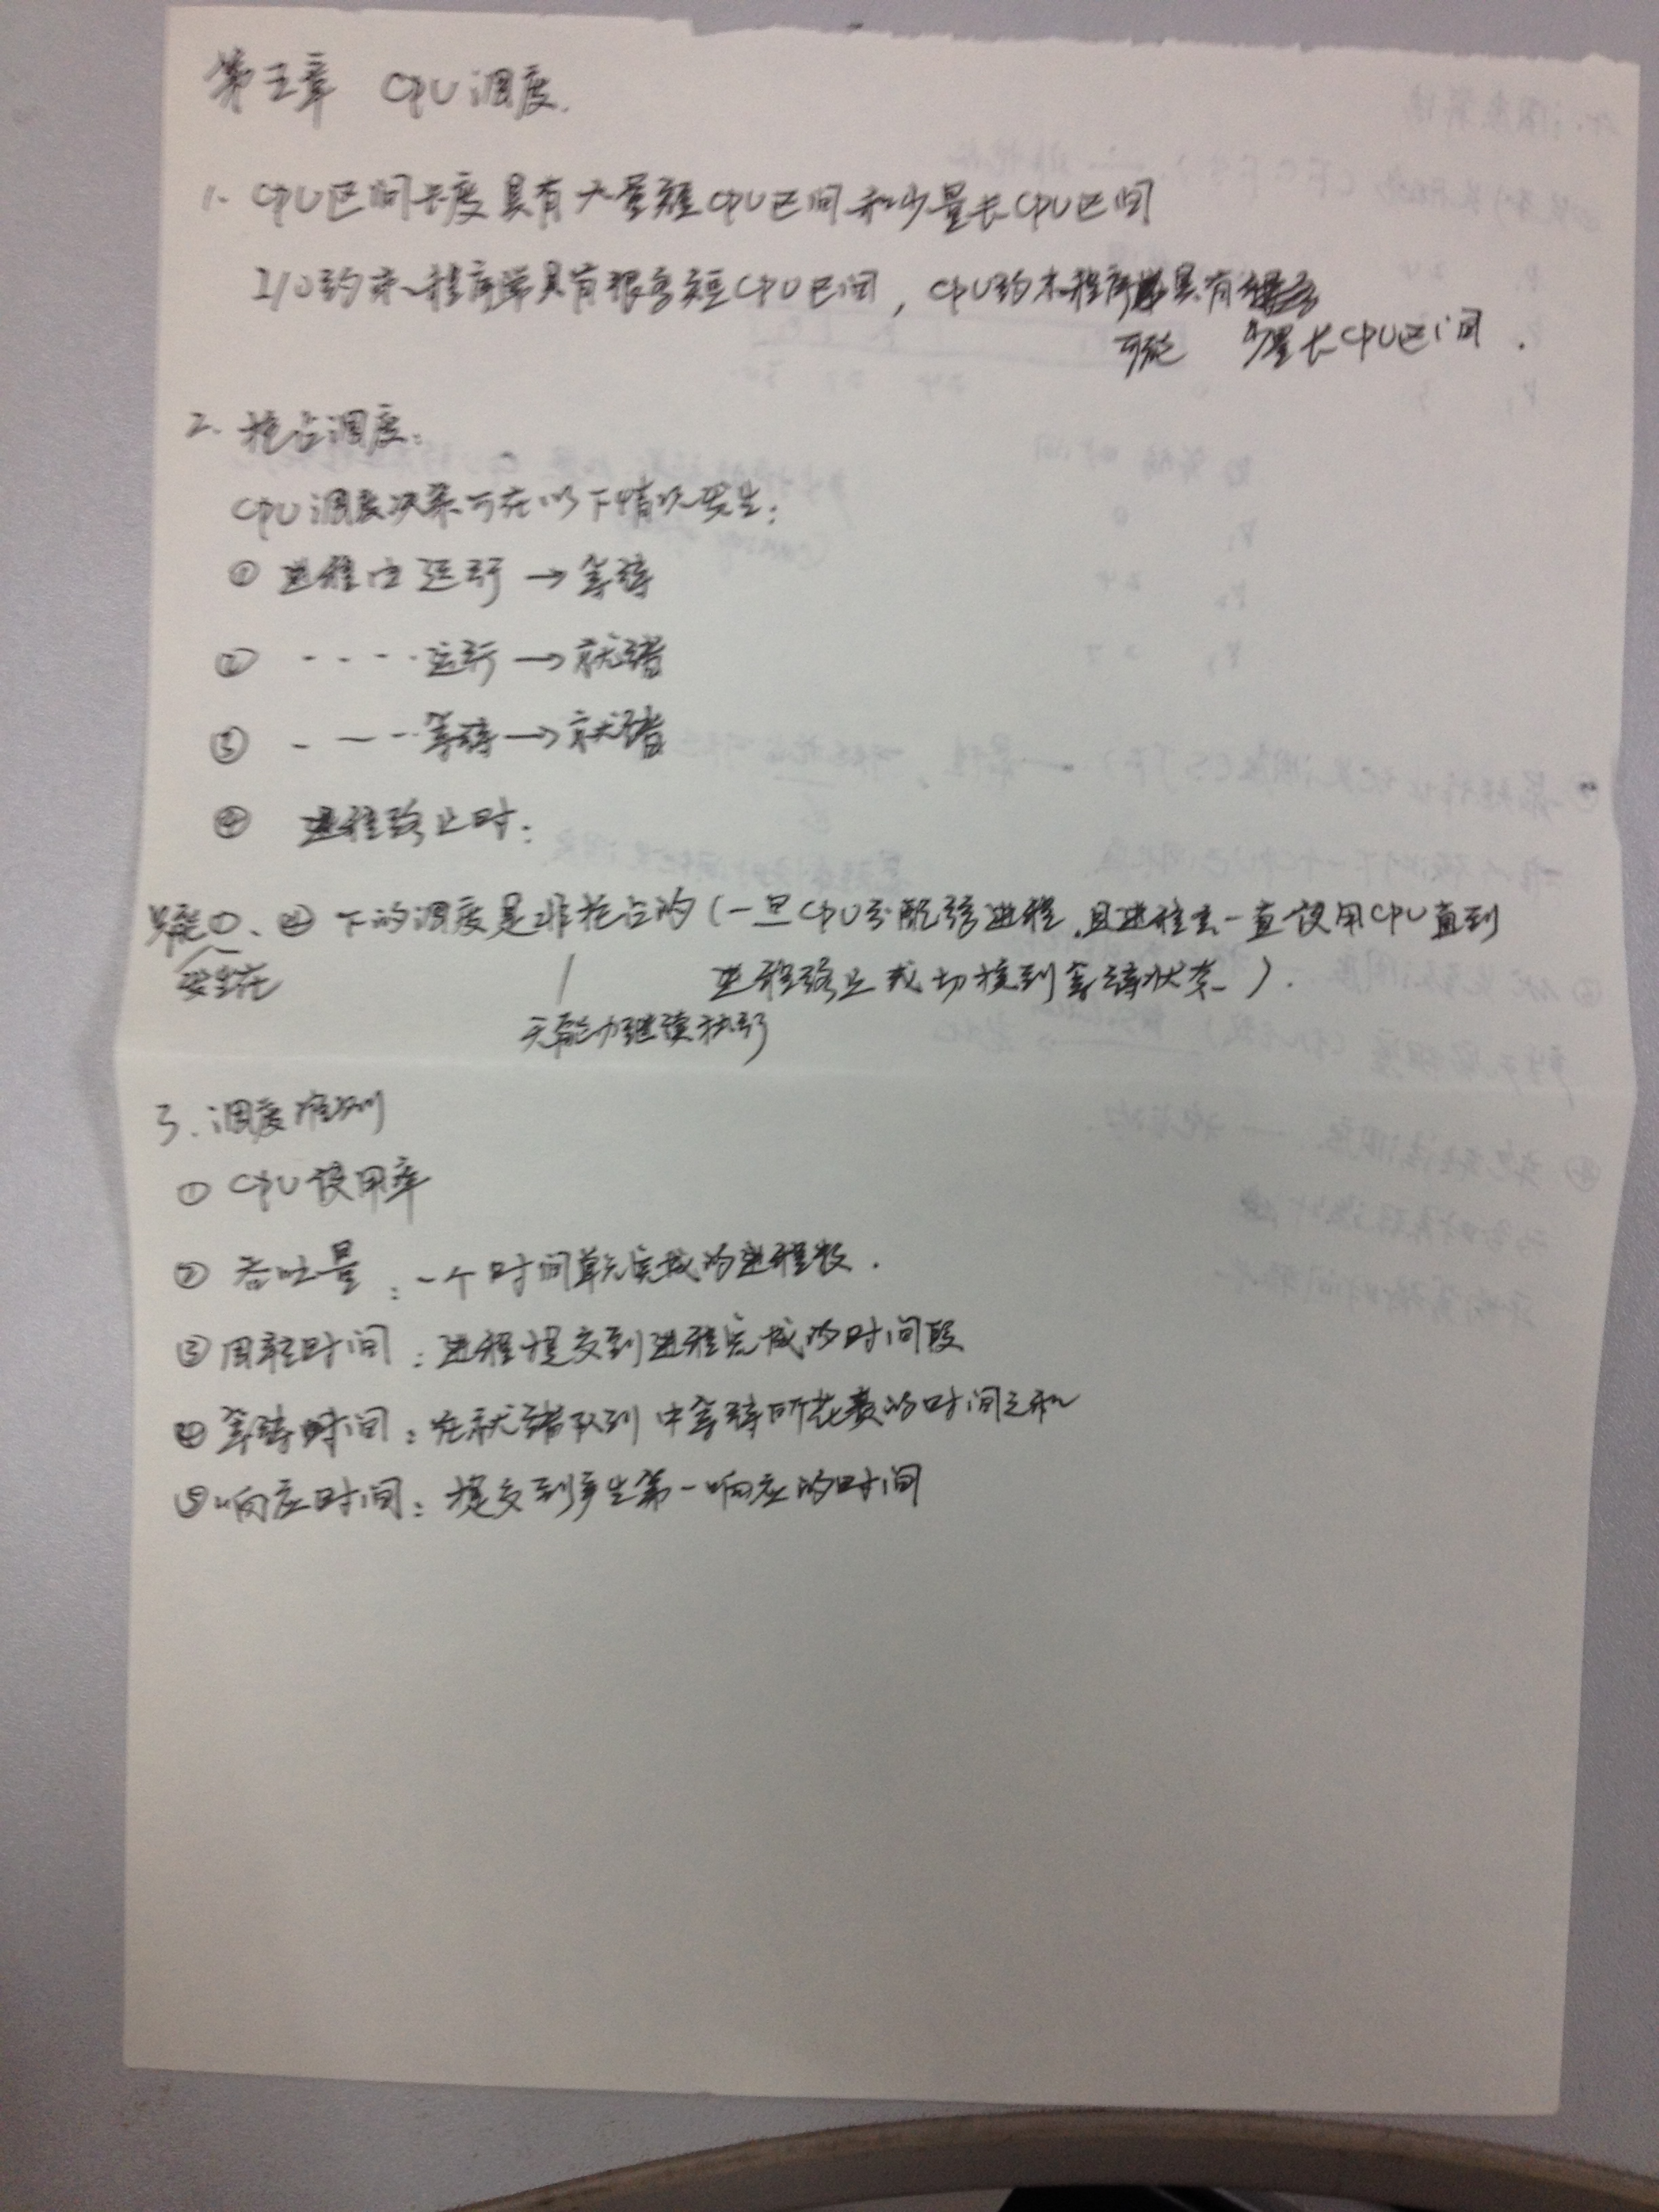 第五章 CPU调度.
1. CPU区间长度具有大量短CPU区间和少量长CPU区间
I/O约束程序常具有很多短CPU区间, CPU约束程序具有
可能 少量长CPU区间.
2. 抢占调度:
CPU调度决策可在以下情况发生:
① 进程由运行→等待
② ----运行→就绪
③ ----等待→就绪
④ 进程终止时:
只能①、④下的调度是非抢占的(一旦CPU分配给进程,且进程会一直使用CPU直到
发生在 进程终止或切换到等待状态).
无能力继续执行
3. 调度准则
① CPU使用率
② 吞吐量: 一个时间单元完成的进程数.
③ 周转时间: 进程提交到进程完成的时间段
④ 等待时间: 在就绪队列中等待所花费的时间之和
⑤ 响应时间: 提交到产生第一响应的时间